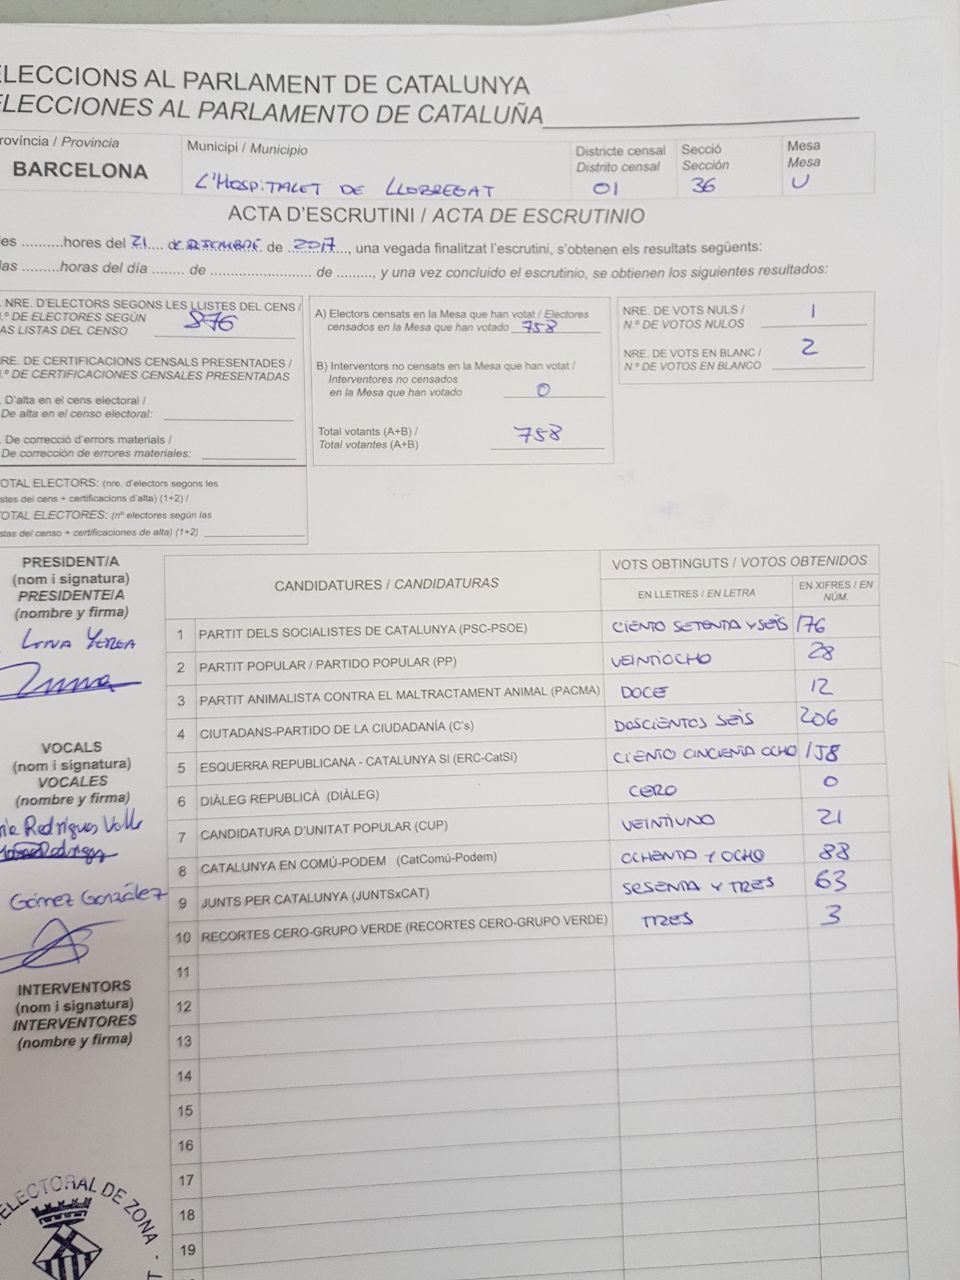 LECCIONS AL PARLAMENT DE CATALUNYA
LECCIONES AL PARLAMENTO DE CATALUÑA
rovíncia / Provincia
BARCELONA
Municipi / Municipio
L'HOSPITALET DE LLOBREGAT
Districte censal
Distrito censal
01
Secció
Sección
36
Mesa
Mesa
U
ACTA D'ESCRUTINI / ACTA DE ESCRUTINIO
les ..........hores del 21 de DESEMBRE de 2017, una vegada finalitzat l'escrutini, s'obtenen els resultats següents:
las .........horas del día ........ de ......................... de ........., y una vez concluido el escrutinio, se obtienen los siguientes resultados:
. NRE. D'ELECTORS SEGONS LES LLISTES DEL CENS /
N.º DE ELECTORES SEGÚN
AS LISTAS DEL CENSO
976
NRE. DE CERTIFICACIONS CENSALS PRESENTADES /
N.º DE CERTIFICACIONES CENSALES PRESENTADAS
. D'alta en el cens electoral /
De alta en el censo electoral:
. De correcció d'errors materials /
De corrección de errores materiales:
OTAL ELECTORS: (nre. d'electors segons les
stes del cens + certificacions d'alta) (1+2) /
OTAL ELECTORES: (nº electores según las
stas del censo + certificaciones de alta) (1+2)
A) Electors censats en la Mesa que han votat / Electores
censados en la Mesa que han votado 758
B) Interventors no censats en la Mesa que han votat /
Interventores no censados
en la Mesa que han votado 0
Total votants (A+B) /
Total votantes (A+B)
758
NRE. DE VOTS NULS /
N.º DE VOTOS NULOS
1
NRE. DE VOTS EN BLANC /
N.º DE VOTOS EN BLANCO
2
PRESIDENT/A
(nom i signatura)
PRESIDENTE/A
(nombre y firma)
VOCALS
(nom i signatura)
VOCALES
(nombre y firma)
Rodrigues Valle
Gómez González
INTERVENTORS
(nom i signatura)
INTERVENTORES
(nombre y firma)
CANDIDATURES / CANDIDATURAS
VOTS OBTINGUTS / VOTOS OBTENIDOS
EN LLETRES / EN LETRA
EN XIFRES / EN
NÚM.
1 PARTIT DELS SOCIALISTES DE CATALUNYA (PSC-PSOE) CIENTO SETENTA Y SEIS 176
2 PARTIT POPULAR / PARTIDO POPULAR (PP) VEINTIOCHO 28
3 PARTIT ANIMALISTA CONTRA EL MALTRACTAMENT ANIMAL (PACMA) DOCE 12
4 CIUTADANS-PARTIDO DE LA CIUDADANÍA (C's) DOSCIENTOS SEIS 206
5 ESQUERRA REPUBLICANA - CATALUNYA SI (ERC-CatSí) CIENTO CINCUENTA OCHO 158
6 DIÀLEG REPUBLICÀ (DIÀLEG) CERO 0
7 CANDIDATURA D'UNITAT POPULAR (CUP) VEINTIUNO 21
8 CATALUNYA EN COMÚ-PODEM (CatComú-Podem) OCHENTA Y OCHO 88
9 JUNTS PER CATALUNYA (JUNTSxCAT) SESENTA Y TRES 63
10 RECORTES CERO-GRUPO VERDE (RECORTES CERO-GRUPO VERDE) TRES 3
11
12
13
14
15
16
17
18
19
ELECTORAL DE ZONA